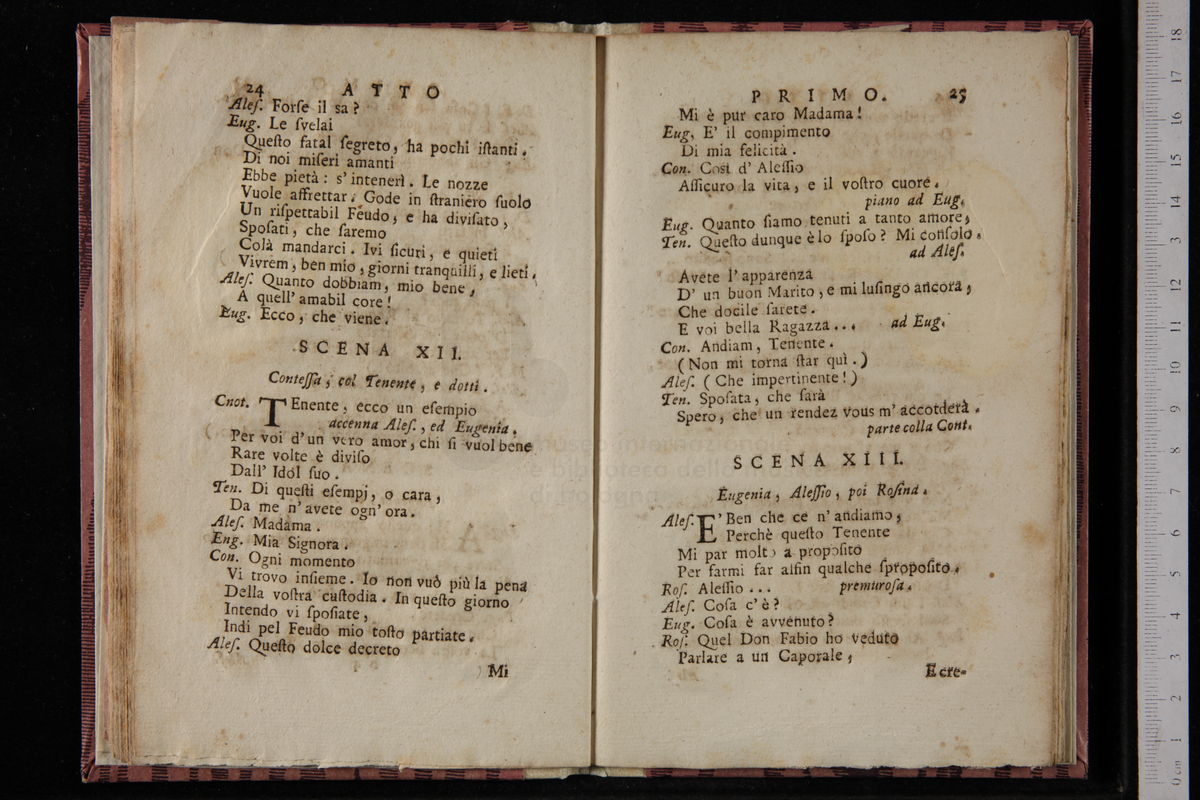 24 ATTO
Aleſ. Forſe il sa?
Eug. Le ſvelai
Queſto fatal ſegreto, ha pochi iſtanti.
Di noi miſeri amanti
Ebbe pietà: s' intenerì. Le nozze
Vuole affrettar. Gode in ſtraniero ſuolo
Un riſpettabil Feudo, e ha diviſato,
Spoſati, che ſaremo
Colà mandarci. Ivi ſicuri, e quieti
Vivrem, ben mio, giorni tranquilli, e lieti.
Aleſ. Quanto dobbiam, mio bene,
A quell' amabil core!
Eug. Ecco, che viene.
SCENA XII.
Conteſſa, col Tenente, e dotti.
Cnot. TEnente, ecco un eſempio
accenna Aleſ., ed Eugenia.
Per voi d' un vero amor, chi ſi vuol bene
Rare volte è diviſo
Dall' Idol ſuo.
Ten. Di queſti eſempj, o cara,
Da me n' avete ogn' ora.
Aleſ. Madama.
Eng. Mia Signora.
Con. Ogni momento
Vi trovo inſieme. Io non vuò più la pena
Della voſtra cuſtodia. In queſto giorno
Intendo vi ſpoſiate,
Indi pel Feudo mio toſto partiate.
Aleſ. Queſto dolce decreto
Mi
PRIMO. 25
Mi è pur caro Madama!
Eug. E' il compimento
Di mia felicità.
Con. Così d' Aleſſio
Aſſicuro la vita, e il voſtro cuore.
piano ad Eug.
Eug. Quanto ſiamo tenuti a tanto amore,
Ten. Queſto dunque è lo ſpoſo? Mi conſolo.
ad Aleſ.
Avete l' apparenza
D' un buon Marito, e mi luſingo ancora,
Che docile ſarete.
E voi bella Ragazza... ad Eug.
Con. Andiam, Tenente.
(Non mi torna ſtar quì.)
Aleſ. (Che impertinente!)
Ten. Spoſata, che ſarà
Spero, che un rendez vous m' accorderà.
parte colla Cont.
SCENA XIII.
Eugenia, Aleſſio, poi Roſina.
Aleſ. E' Ben che ce n' andiamo,
Perchè queſto Tenente
Mi par molto a propoſito
Per farmi far alfin qualche ſpropoſito.
Roſ. Aleſſio... premuroſa.
Aleſ. Coſa c' è?
Eug. Coſa è avvenuto?
Roſ. Quel Don Fabio ho veduto
Parlare a un Caporale,
E cre-
museo internazionale
e biblioteca della musica
di bologna
0 cm 1 2 3 4 5 6 7 8 9 10 11 12 13 14 15 16 17 18